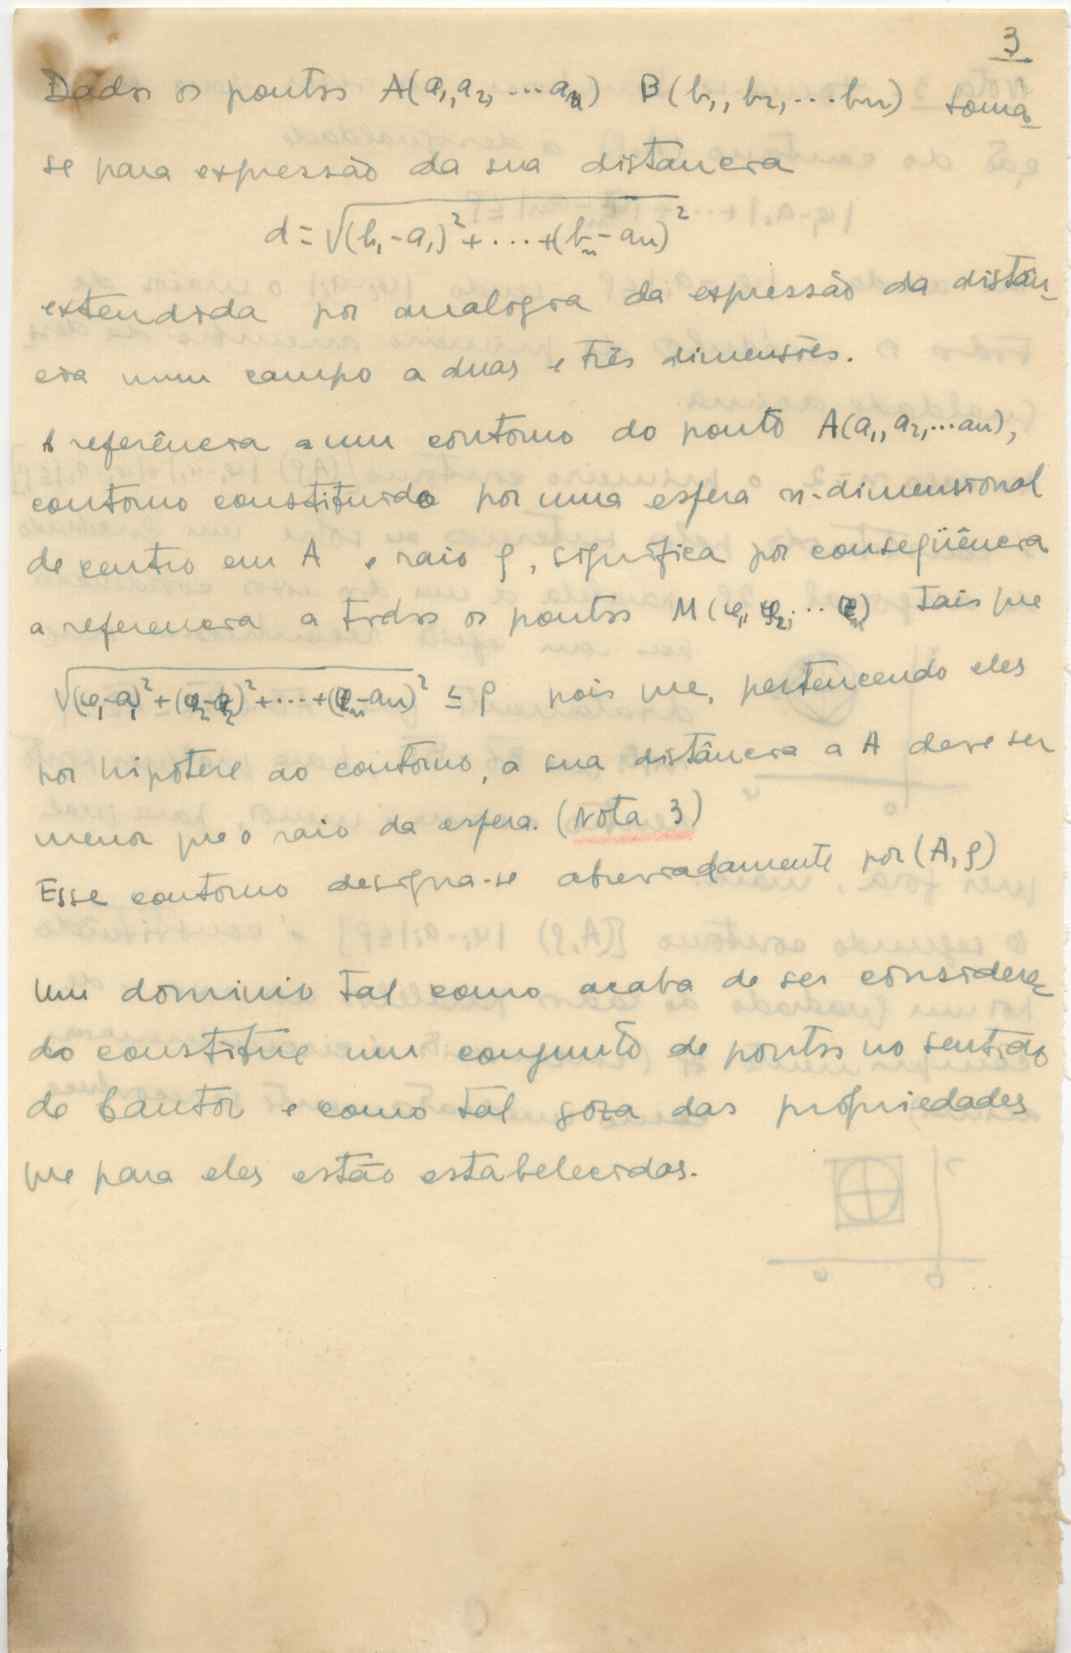 3
Dados os pontos A(a₁,a₂, ... aₙ) B(b₁, b₂, ... bₙ) toma-
se para expressão da sua distancia
d = √(b₁-a₁)² + ... + (bₙ-aₙ)²
extendida por analogia da expressão da distân-
cia num campo a duas e três dimensões.
A referência a um contorno do ponto A(a₁, a₂, ... aₙ),
contorno constituido por uma esfera n-dimensional
de centro em A e raio ρ, significa por conseqüência
a referencia a todos os pontos M(φ₁, φ₂, ... φₙ) tais que
√(φ₁-a₁)² + (φ₂-a₂)² + ... + (φₙ-aₙ)² ≤ ρ pois que, pertencendo eles
por hipótese ao contorno, a sua distância a A deve ser
menor que o raio da esfera. (Nota 3)
Esse contorno designa-se abreviadamente por (A, ρ)
Um dominio tal como acaba de ser considera-
do constitue um conjunto de pontos no sentido
de Cantor e como tal goza das propriedades
que para eles estão estabelecidas.